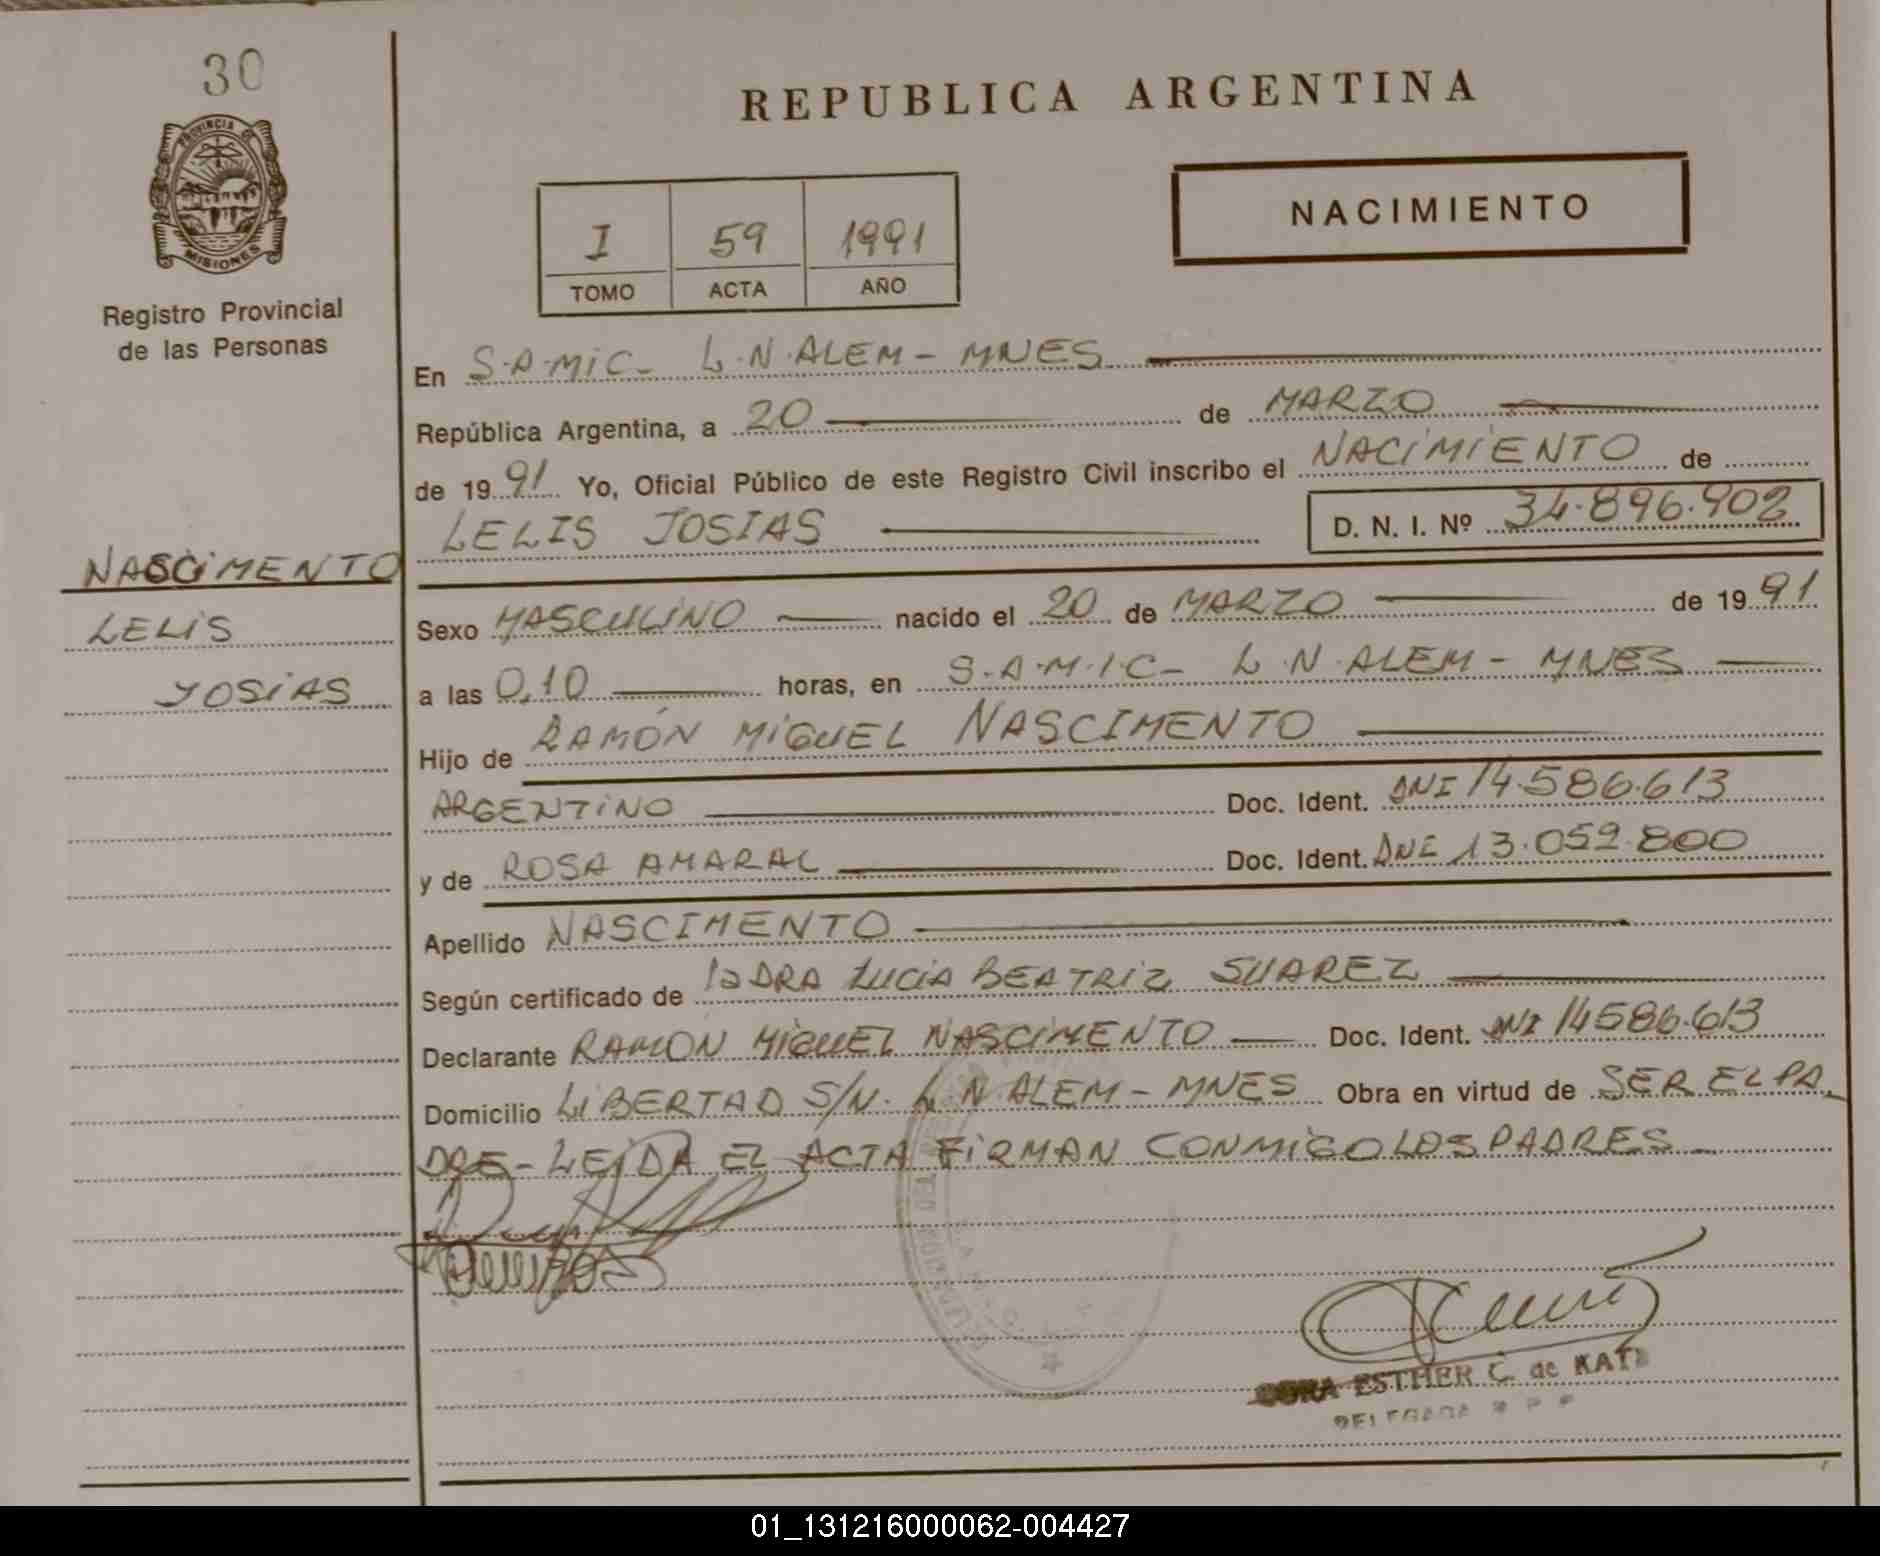 30
PROVINCIA DE
MISIONES
Registro Provincial
de las Personas
NASCIMENTO
LELIS
JOSIAS
REPUBLICA ARGENTINA
I 59 1991
TOMO ACTA AÑO
NACIMIENTO
En S.A.MIC- L.N.ALEM - MNES
República Argentina, a 20 de MARZO
de 1991 Yo, Oficial Público de este Registro Civil inscribo el NACIMIENTO de
LELIS JOSIAS D. N. I. Nº 34.896.902
Sexo MASCULINO nacido el 20 de MARZO de 1991
a las 0,10 horas, en S.A.M.I.C- L.N.ALEM - MNES
Hijo de RAMÓN MIGUEL NASCIMENTO
ARGENTINO Doc. Ident. DNI 14.586.613
y de ROSA AMARAL Doc. Ident. DNI 13.059.800
Apellido NASCIMENTO
Según certificado de la DRA LUCIA BEATRIZ SUAREZ
Declarante RAMON MIGUEL NASCIMENTO Doc. Ident. DNI 14586.613
Domicilio LIBERTAD S/N. L.N.ALEM - MNES Obra en virtud de SER EL PA
DRE - LEIDA EL ACTA FIRMAN CONMIGO LOS PADRES
ESTHER C. de KATZ
DELEGADA
01_131216000062-004427